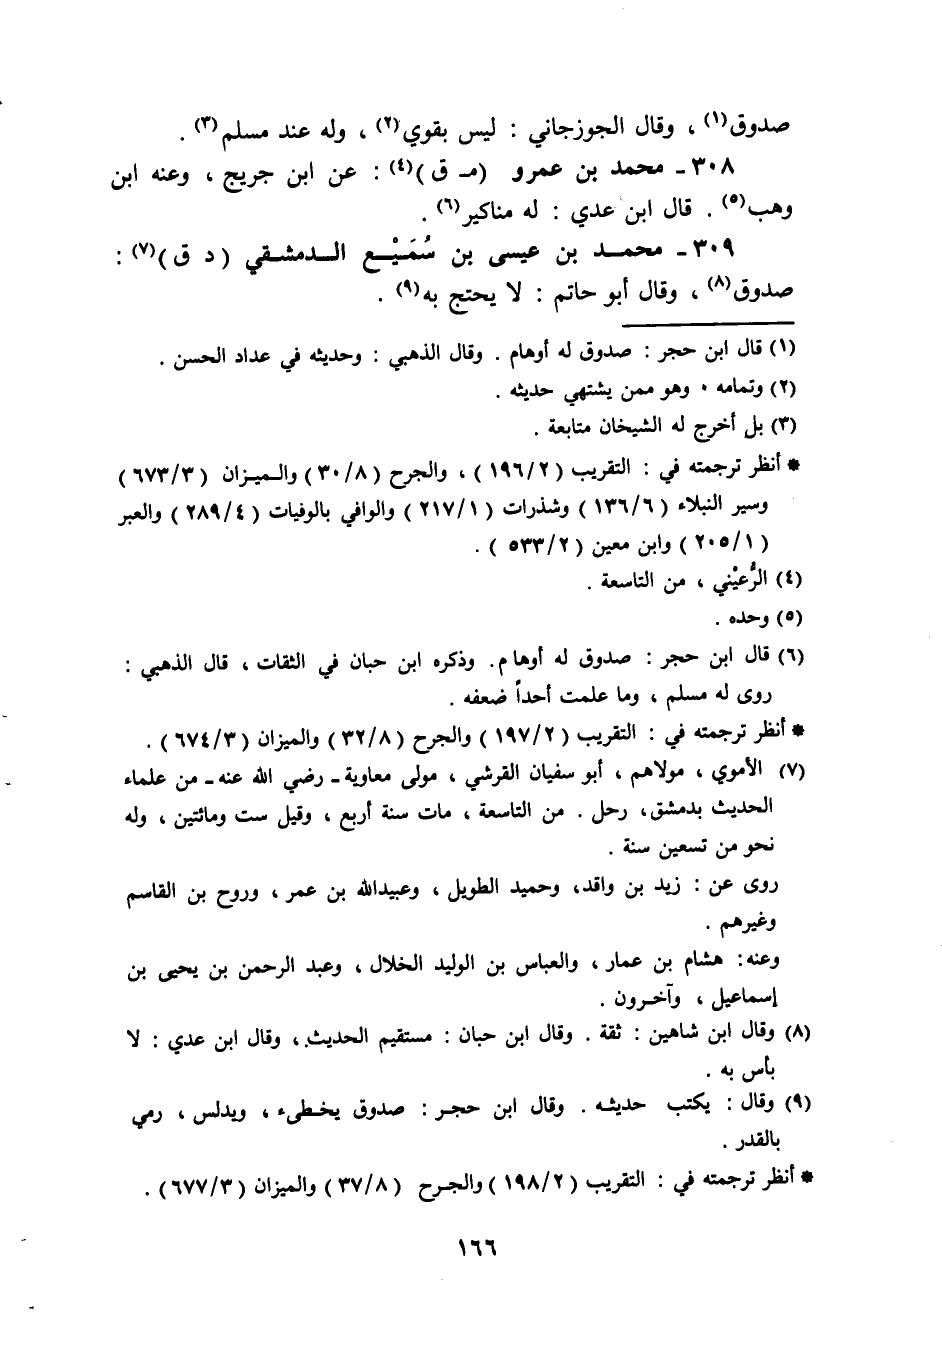 صدوق(١) ، وقال الجوزجاني : ليس بقوي(٢) ، وله عند مسلم(٣) .
٣٠٨ ـ محمد بن عمرو (مـ ق )(٤) : عن ابن جريج ، وعنه ابن
وهب(٥) . قال ابن عدي : له مناكير(٦) .
٣٠٩ ـ محمـد بن عيسى بن سُمَيْـع الـدمشقي ( د ق )(٧) :
صدوق(٨) ، وقال أبو حاتم : لا يحتج به(٩) .
(١) قال ابن حجر : صدوق له أوهام . وقال الذهبي : وحديثه في عداد الحسن .
(٢) وتمامه ٠ وهو ممن يشتهي حديثه .
(٣) بل أخرج له الشيخان متابعة .
* أنظر ترجمته في : التقريب ( ١٩٦/٢ ) ، والجرح ( ٣٠/٨ ) والـميـزان ( ٦٧٣/٣ )
وسير النبلاء ( ١٣٦/٦ ) وشذرات ( ٢١٧/١ ) والوافي بالوفيات ( ٢٨٩/٤ ) والعبر
( ٢٠٥/١ ) وابن معين ( ٥٣٣/٢ ) .
(٤) الرُّعيْني ، من التاسعة .
(٥) وحده .
(٦) قال ابن حجر : صدوق له أوهام. وذكره ابن حبان في الثقات ، قال الذهبي :
روى له مسلم ، وما علمت أحداً ضعفه .
* أنظر ترجمته في : التقريب ( ١٩٧/٢ ) والجرح ( ٣٢/٨ ) والميزان ( ٦٧٤/٣ ) .
(٧) الأموي ، مولاهم ، أبو سفيان القرشي ، مولى معاوية ـ رضي الله عنه ـ من علماء
الحديث بدمشق، رحل . من التاسعة ، مات سنة أربع ، وقيل ست ومائتين ، وله
نحو من تسعين سنة .
روى عن : زيد بن واقد، وحميد الطويل ، وعبيدالله بن عمر ، وروح بن القاسم
وغيرهم .
وعنه: هشام بن عمار ، والعباس بن الوليد الخلال ، وعبد الرحمن بن يحيى بن
إسماعيل ، وآخـرون .
(٨) وقال ابن شاهين : ثقة . وقال ابن حبان : مستقيم الحديث ، وقال ابن عدي : لا
بأس به .
(٩) وقال : يكتب حديثـه . وقال ابن حجـر : صدوق يخـطيء ، ويدلس ، رمي
بالقدر .
* أنظر ترجمته في : التقريب ( ١٩٨/٢ ) والجـرح ( ٣٧/٨ ) والميزان ( ٦٧٧/٣ ) .
١٦٦